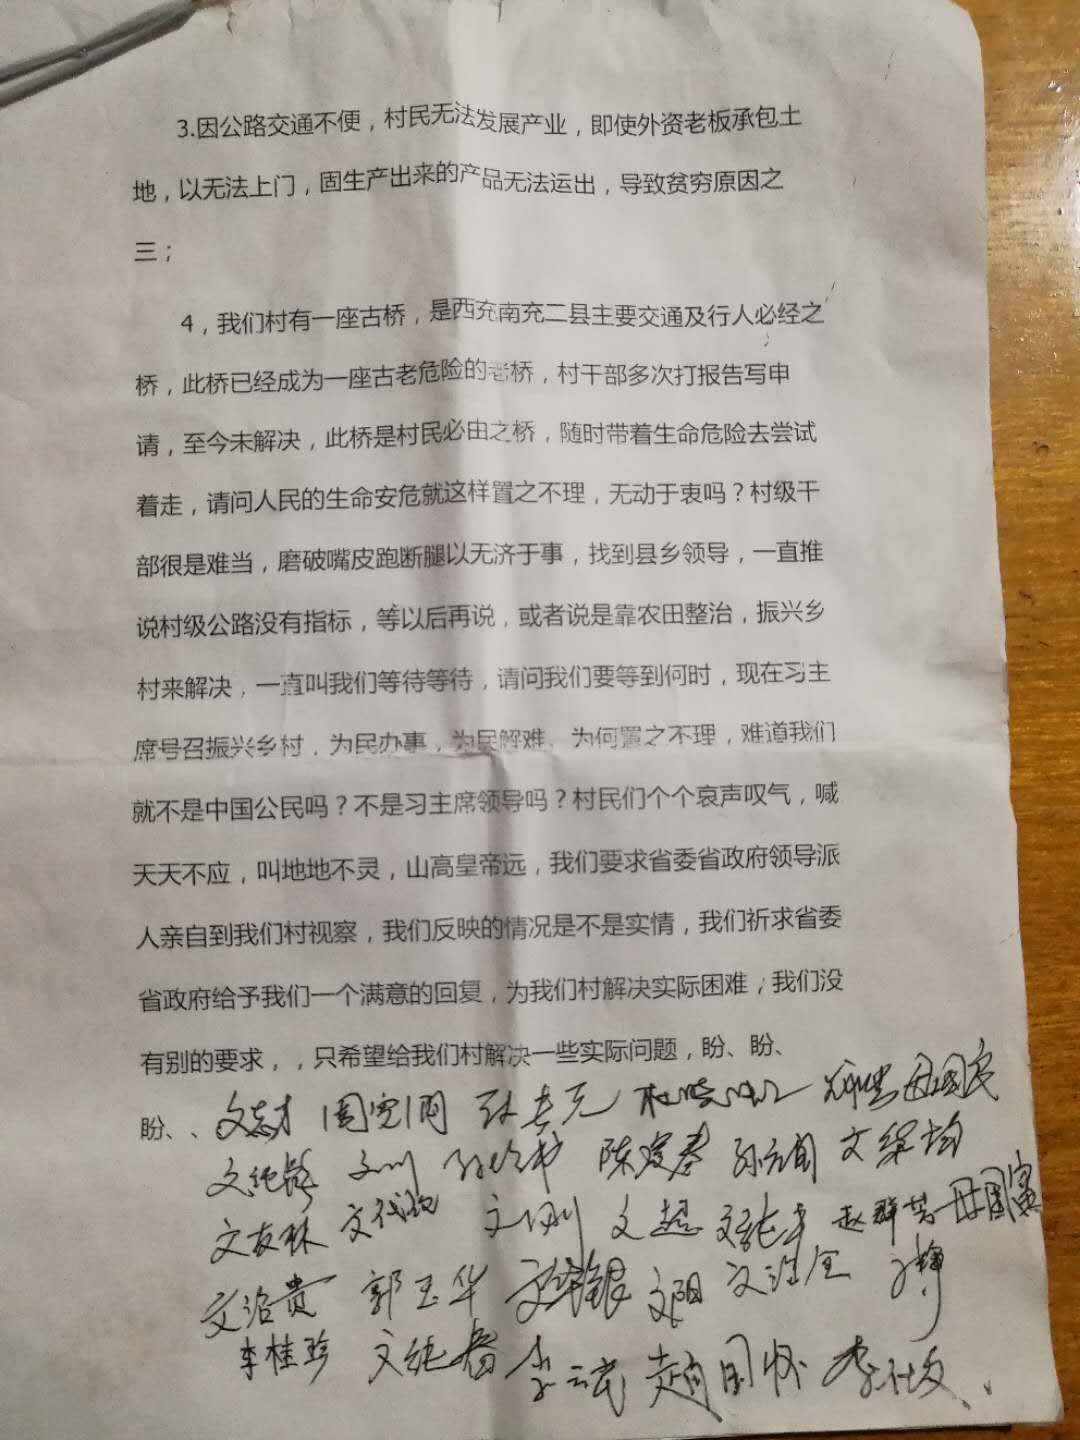 3.因公路交通不便，村民无法发展产业，即使外资老板承包土
地，以无法上门，固生产出来的产品无法运出，导致贫穷原因之
三；
4，我们村有一座古桥，是西充南充二县主要交通及行人必经之
桥，此桥已经成为一座古老危险的老桥，村干部多次打报告写申
请，至今未解决，此桥是村民必由之桥，随时带着生命危险去尝试
着走，请问人民的生命安危就这样置之不理，无动于衷吗？村级干
部很是难当，磨破嘴皮跑断腿以无济于事，找到县乡领导，一直推
说村级公路没有指标，等以后再说，或者说是靠农田整治，振兴乡
村来解决，一直叫我们等待等待，请问我们要等到何时，现在习主
席号召振兴乡村，为民办事，为民解难、为何置之不理，难道我们
就不是中国公民吗？不是习主席领导吗？村民们个个哀声叹气，喊
天天不应，叫地地不灵，山高皇帝远，我们要求省委省政府领导派
人亲自到我们村视察，我们反映的情况是不是实情，我们祈求省委
省政府给予我们一个满意的回复，为我们村解决实际困难；我们没
有别的要求，，只希望给我们村解决一些实际问题，盼、盼、
盼、、文志才 母国民
陈俊春
文友林 文刚 文超 赵群芳 母国富
文治贵 郭玉华 文阳
李桂珍 文纯春 赵国怀